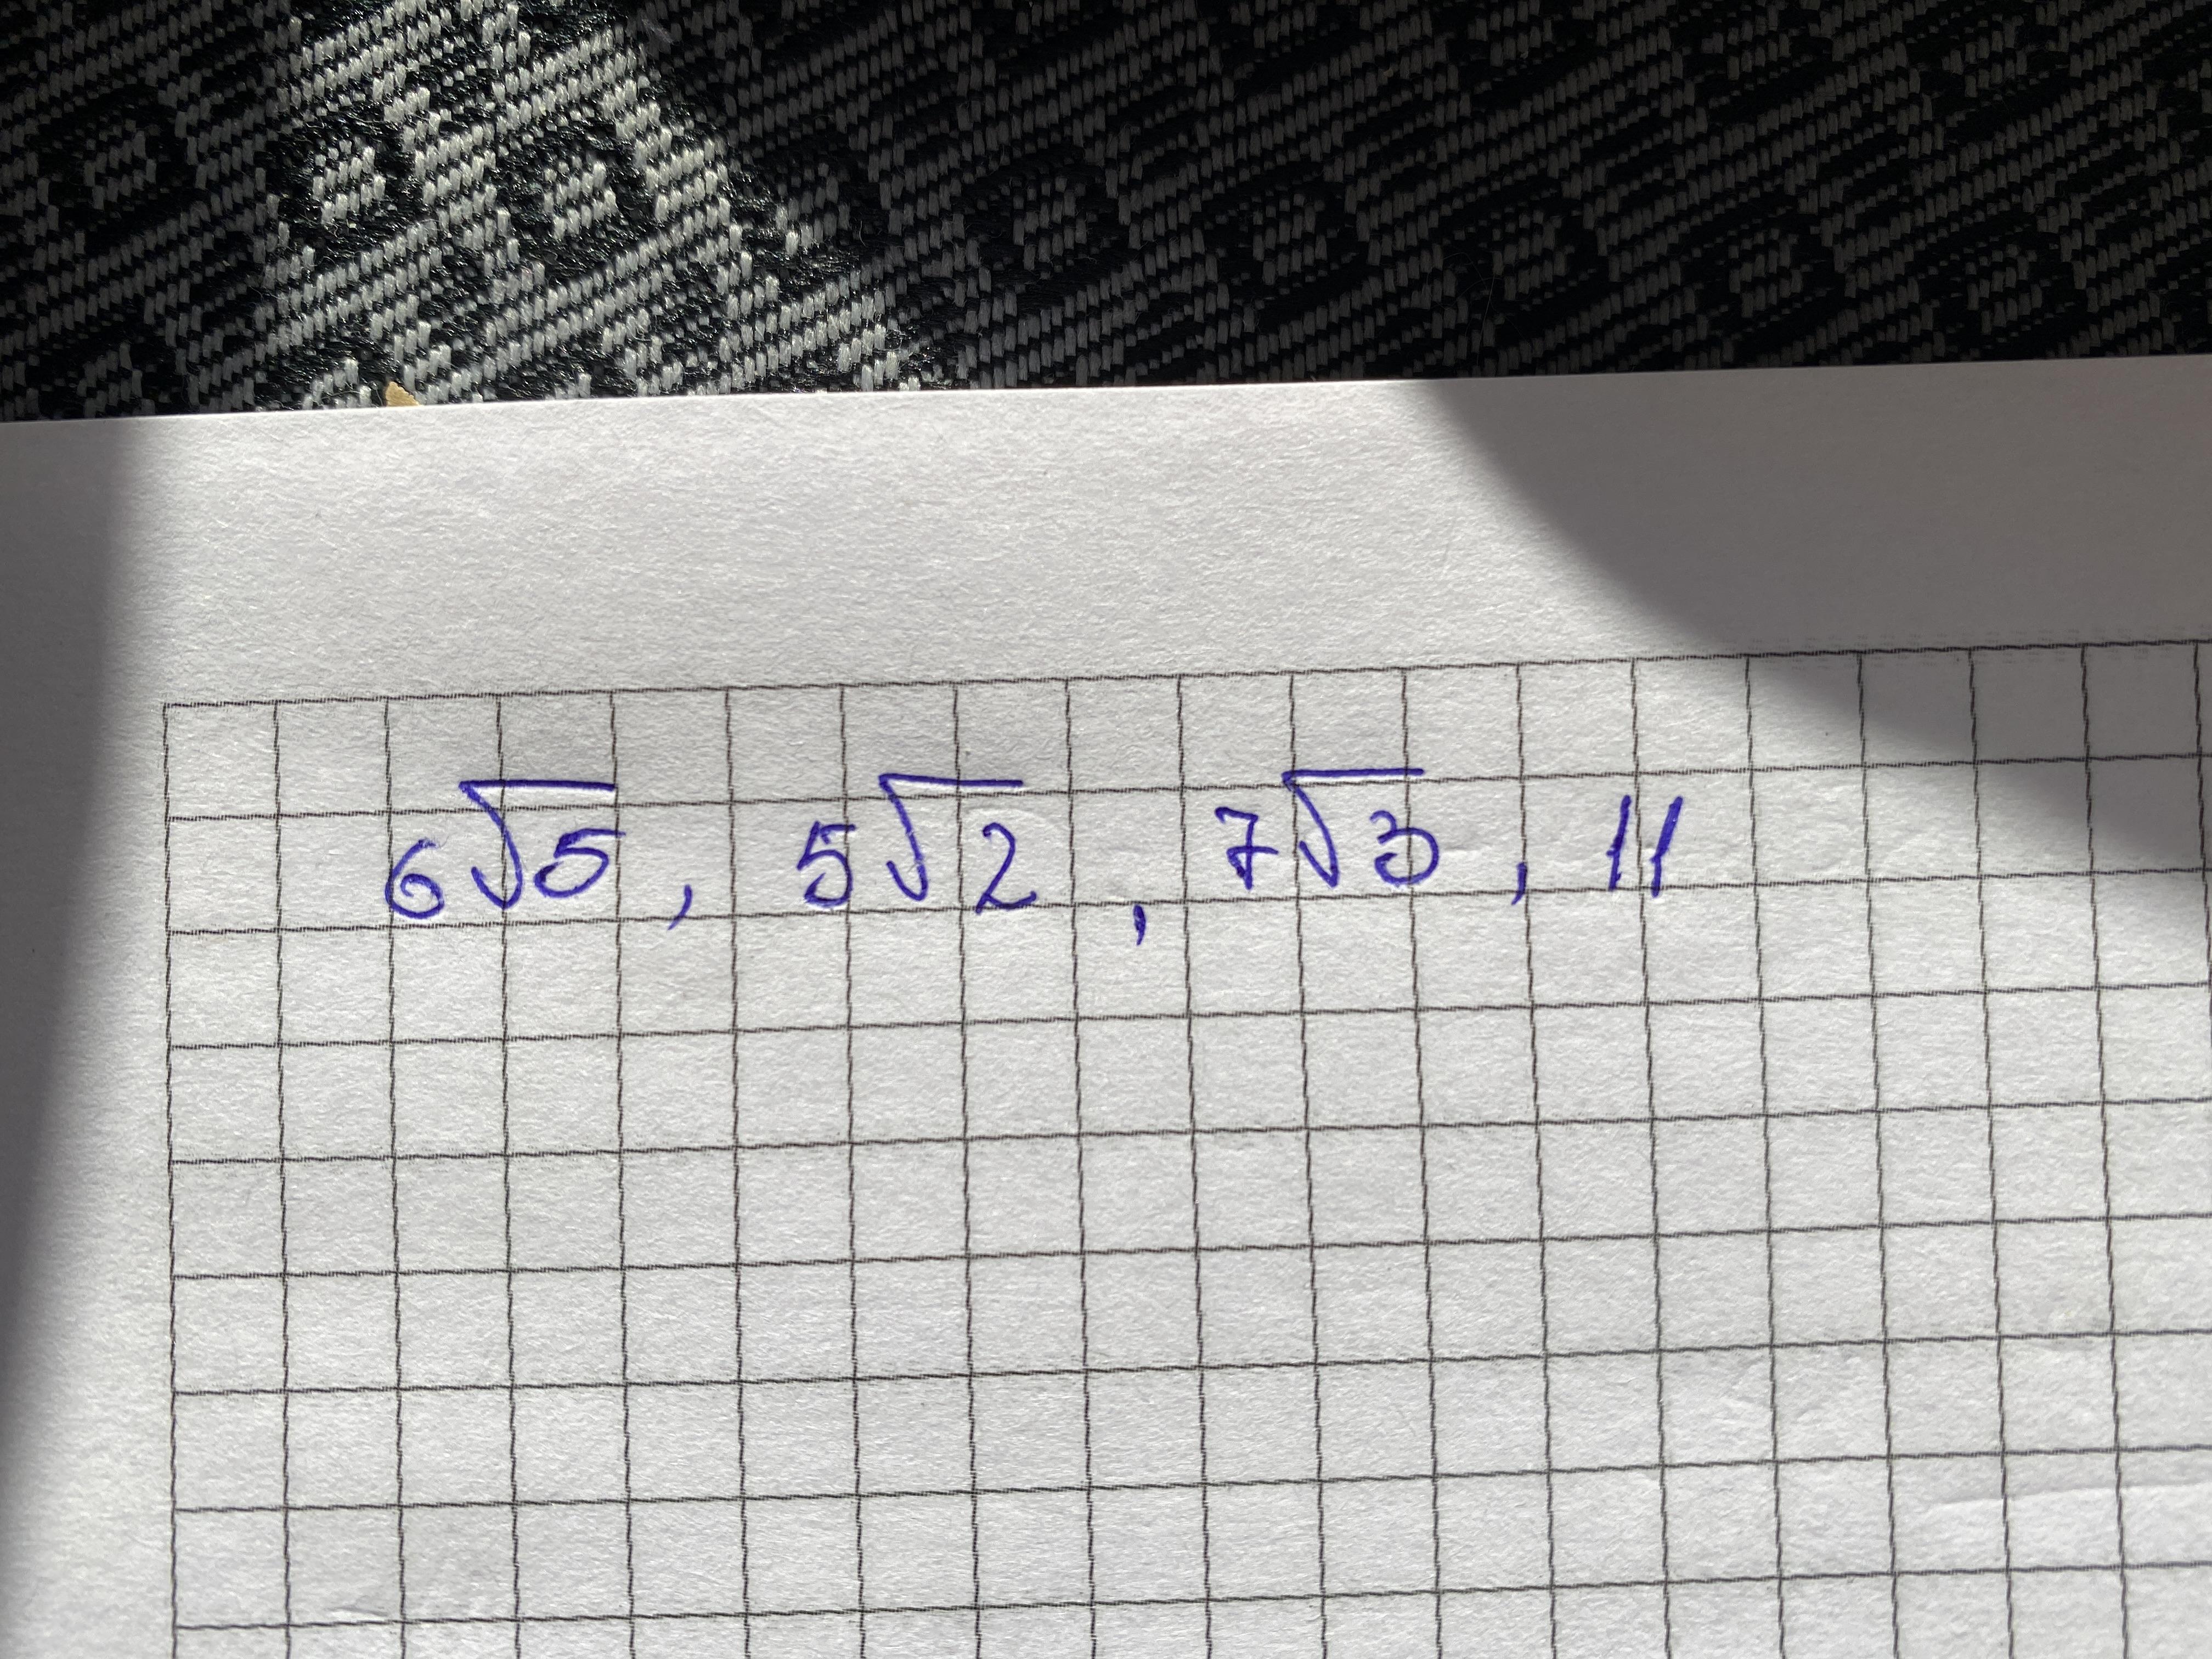 6√5, 5√2, 7√3, 11